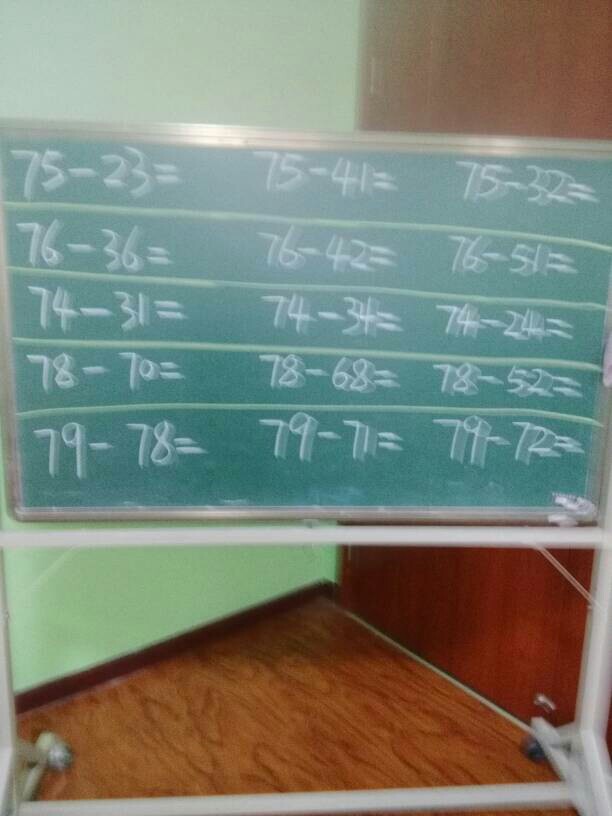 75-23= 75-41= 75-32=
76-36= 76-42= 76-51=
74-31= 74-34= 74-24=
78-70= 78-68= 78-52=
79-78= 79-71= 79-72=